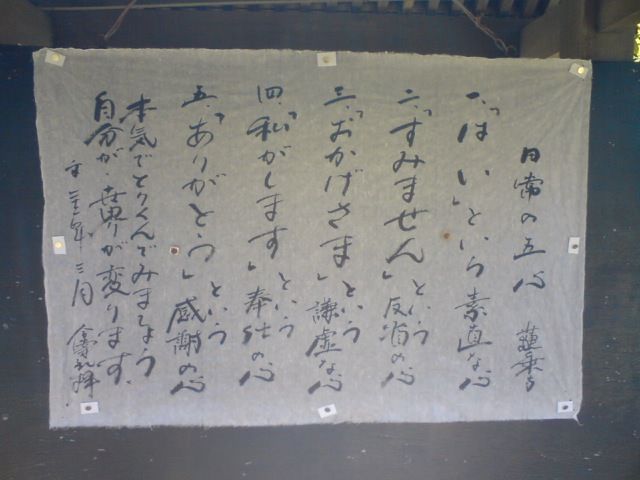 日常の五心
一、「はい」という素直な心
二、「すみません」という反省の心
三、「おかげさま」という謙虚な心
四、「私がします」という奉仕の心
五、「ありがとう」という感謝の心
本気でとりくんでみましょう
自分が、まわりが変ります。
三月